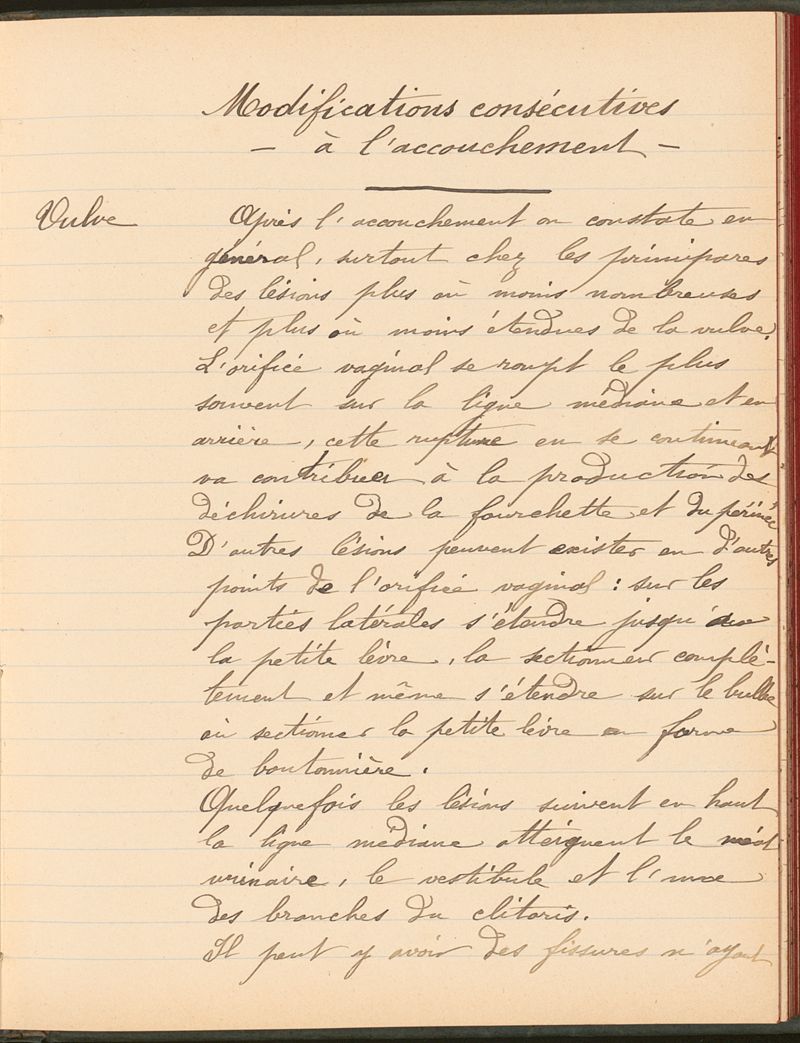 Modifications consécutives
- à l'accouchement -
Vulve
Après l'accouchement on constate en
général, surtout chez les primipares
des lésions plus où moins nombreuses
et plus où moins étendues de la vulve.
L'orifice vaginal se rompt le plus
souvent sur la ligne médiane et en
arrière, cette rupture en se continuant
va contribuer à la production des
déchirures de la fourchette et du périnée
D'autres lésions peuvent exister en d'autres
points de l'orifice vaginal : sur les
parties latérales s'étendre jusqu'au
la petite lèvre, la sectionner complé-
tement et même s'étendre sur le bulbe
où sectionner la petite lèvre en forme
de boutonnière.
Quelquefois les lésions suivent en haut
la ligne médiane atteignent le méat
urinaire, le vestibule et l'une
des branches du clitoris.
Il peut y avoir des fissures n'ayant